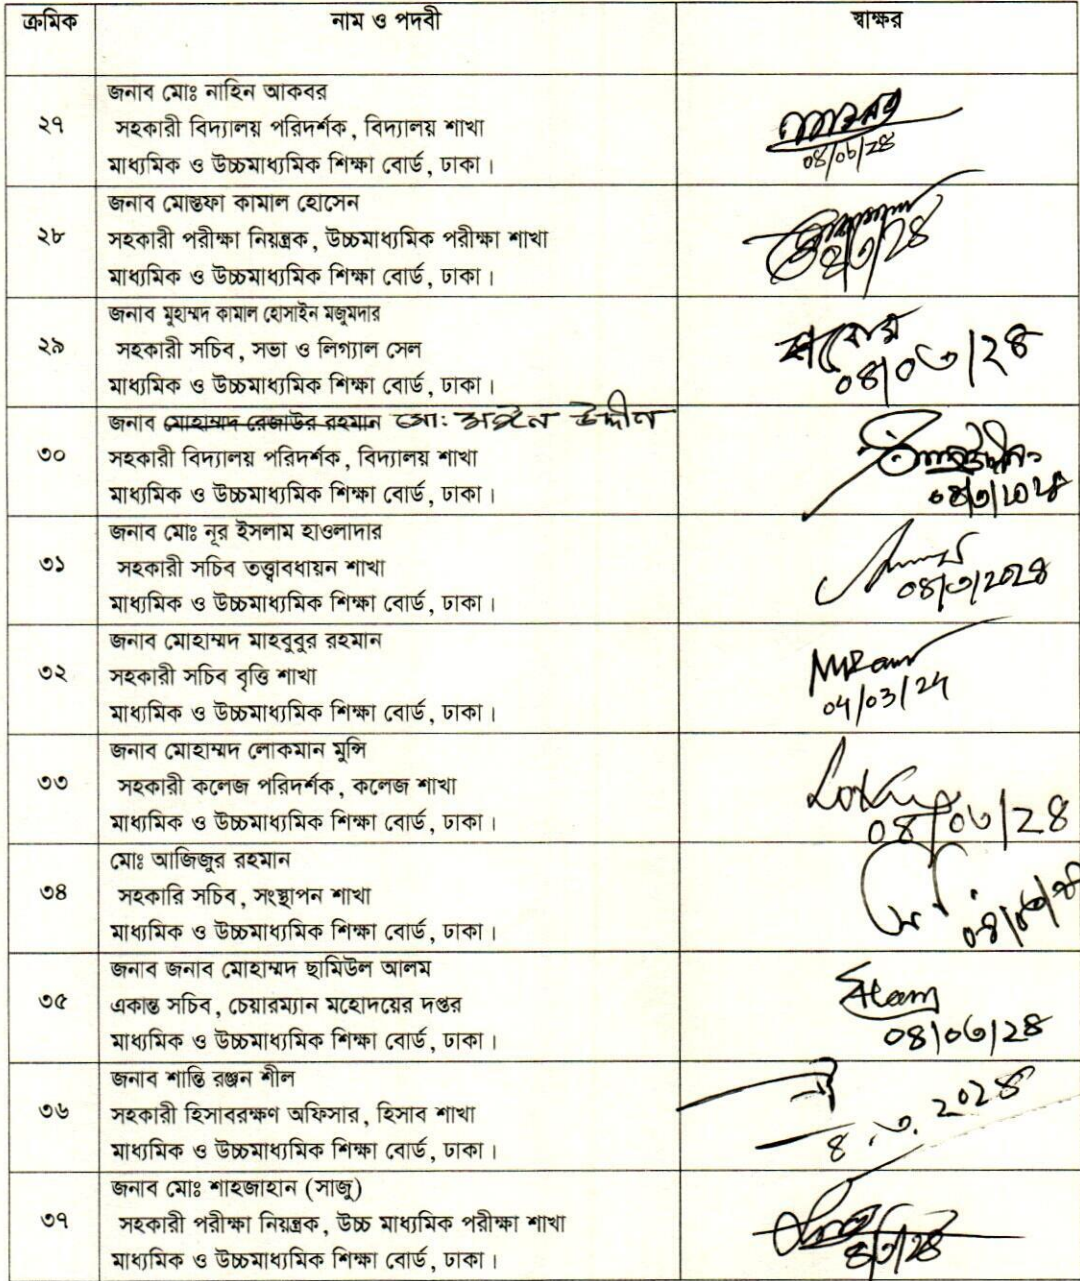 ক্রমিক নাম ও পদবী স্বাক্ষর
জনাব মোঃ নাহিন আকবর
২৭ সহকারী বিদ্যালয় পরিদর্শক, বিদ্যালয় শাখা
মাধ্যমিক ও উচ্চমাধ্যমিক শিক্ষা বোর্ড, ঢাকা।
০৪/০৩/২৪
জনাব মোস্তফা কামাল হোসেন
২৮ সহকারী পরীক্ষা নিয়ন্ত্রক, উচ্চমাধ্যমিক পরীক্ষা শাখা
মাধ্যমিক ও উচ্চমাধ্যমিক শিক্ষা বোর্ড, ঢাকা।
৪/৩/২৪
জনাব মুহাম্মদ কামাল হোসাইন মজুমদার
২৯ সহকারী সচিব, সভা ও লিগ্যাল সেল
মাধ্যমিক ও উচ্চমাধ্যমিক শিক্ষা বোর্ড, ঢাকা।
০৪/০৩/২৪
জনাব মোহাম্মদ রেজাউর রহমান মো: মঈন উদ্দীন
৩০ সহকারী বিদ্যালয় পরিদর্শক, বিদ্যালয় শাখা
মাধ্যমিক ও উচ্চমাধ্যমিক শিক্ষা বোর্ড, ঢাকা।
০৪/৩/২০২৪
জনাব মোঃ নূর ইসলাম হাওলাদার
৩১ সহকারী সচিব তত্ত্বাবধায়ন শাখা
মাধ্যমিক ও উচ্চমাধ্যমিক শিক্ষা বোর্ড, ঢাকা।
০৪/৩/২০২৪
জনাব মোহাম্মদ মাহবুবুর রহমান
৩২ সহকারী সচিব বৃত্তি শাখা
মাধ্যমিক ও উচ্চমাধ্যমিক শিক্ষা বোর্ড, ঢাকা।
04/03/24
জনাব মোহাম্মদ লোকমান মুন্সি
৩৩ সহকারী কলেজ পরিদর্শক, কলেজ শাখা
মাধ্যমিক ও উচ্চমাধ্যমিক শিক্ষা বোর্ড, ঢাকা।
০৪/০৩/২৪
মোঃ আজিজুর রহমান
৩৪ সহকারি সচিব, সংস্থাপন শাখা
মাধ্যমিক ও উচ্চমাধ্যমিক শিক্ষা বোর্ড, ঢাকা।
জনাব জনাব মোহাম্মদ ছামিউল আলম
৩৫ একান্ত সচিব, চেয়ারম্যান মহোদয়ের দপ্তর
মাধ্যমিক ও উচ্চমাধ্যমিক শিক্ষা বোর্ড, ঢাকা।
Alam
০৪/০৩/২৪
জনাব শান্তি রঞ্জন শীল
৩৬ সহকারী হিসাবরক্ষণ অফিসার, হিসাব শাখা
মাধ্যমিক ও উচ্চমাধ্যমিক শিক্ষা বোর্ড, ঢাকা।
৪.৩.২০২৪
জনাব মোঃ শাহজাহান (সাজু)
৩৭ সহকারী পরীক্ষা নিয়ন্ত্রক, উচ্চ মাধ্যমিক পরীক্ষা শাখা
মাধ্যমিক ও উচ্চমাধ্যমিক শিক্ষা বোর্ড, ঢাকা।
৪/৩/২৪